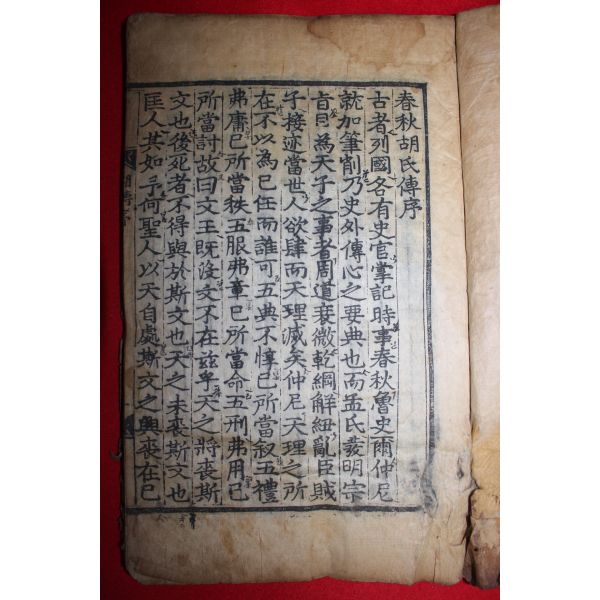 春秋胡氏傳序
古者列國各有史官掌記時事春秋魯史爾仲尼
就加筆削乃史外傳心之要典也而孟氏發明宗
旨目為天子之事者周道衰微乾綱解紐亂臣賊
子接迹當世人欲肆而天理滅矣仲尼天理之所
在不以為已任而誰可五典不惇已所當叙五禮
弗庸已所當秩五服弗章已所當命五刑弗用已
所當討故曰文王既沒文不在玆乎天之將喪斯
文也後死者不得與於斯文也天之未喪斯文也
匡人其如予何聖人以天自處斯文之興喪在已